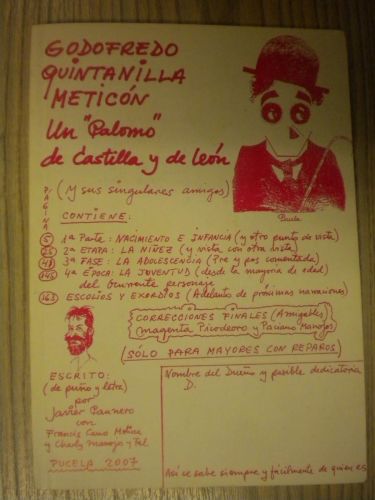 GODOFREDO
QUINTANILLA
METICÓN
Un "Palomo"
de Castilla y de León
Pucela
PÁGINA
(y sus singulares amigos)
CONTIENE:
5 1ª Parte: NACIMIENTO E INFANCIA (y otro punto de vista)
25 2ª ETAPA: LA NIÑEZ (y vista con otra vista)
3ª FASE: LA ADOLESCENCIA (Pre y pos comentada)
145 4ª ÉPOCA: LA JUVENTUD (desde la mayoría de edad)
del personaje
163 ESCOLIOS Y EXORDIOS (Adelanto de próximas narraciones)
CORRECCIONES FINALES (Amigables)
Magenta Picodeoro y Paciano Manojos
SÓLO PARA MAYORES CON REPAROS
ESCRITO:
(de puño y letra)
por
Javier
con
Francis Cano Molina
y Charly Manojo y Tal
PUCELA 2007
Nombre del Dueño y posible dedicatoria
D.
Así se sabe siempre y fácilmente de quien es